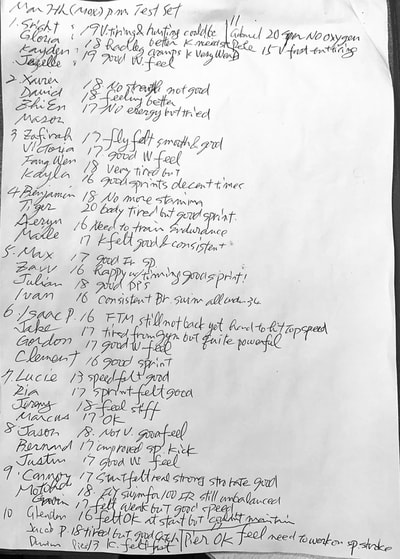 Mar 7th (Mox) pm Test Set
1. : 19 V. tiring & hurting could be
Gloria : 18 better K
Kayden : 19 cramps K Very Weird
: 19 good W feel
11
20 2pm No oxygen
15 V fast enthiring
2. Xavier 18 No not good
David 18 feeling better
Zhi En 17 No energy but tried
Mason
3 Zafirah 17 fly felt smooth & good
Victoria 17 good W feel
Fang Wen 18 Very tired but
Kayla 16 good sprints decent times
4. Benjamin 18 No more stamina
Tiger 20 body tired but good sprint
16 Need to train Endurance
17 K felt good & consistent
5. Max 17 good Fr sp
16 Happy w timing good sprint!
Julian 18 good DPS
Ivan 16 Consistent Br swim all under 36
6 Isaac P. 16 FTM still not back yet hard to hit top speed
Jake 17 tired from Gym but quite powerful
Gordon 17 good W feel
Clement 16 good sprint
7. Lucie 13 speed felt good
Ria 17 Sprint felt good
Jeremy 18 feel stiff
Marcus 17 OK
8. Jason 18. Not V. good feel
Bernard 17 improved sp. kick
Justin 17 good W feel
9. 17 Start felt real strong str rate good
18. swim for 100 FR still unbalanced
17 felt weak but good speed
10 Glendon 16 felt OK at start but couldn't maintain
Jacob P 18 tired but good
K. felt Pier OK feel need to work on sp stroke